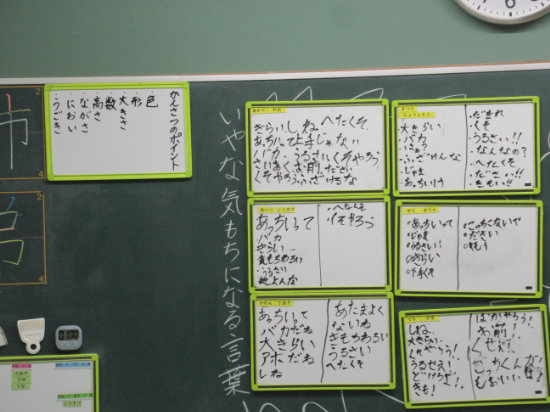 かんさつのポイント
・色
・形
・大きさ
・数
・高さ
・ながさ
・におい
・うごき
いやな気もちになる言葉
きらい しね へたくそ
あっちいって 上手じゃない
バカ うるさい くそやろう
大きらい
バカ
・ふざけんな
・じゃま
・あっちいけ
・だまれ
・くそ
・うるさい!!
・なんなの?
・へたくそ
・ださい
・きもい!!
あっちいって
バカ
きらい
気もちわるい
うるさい
・へたくそ
・くそやろう
・あっちいって
・じゃま
・うるさい!
・きらい
・下手くそ
・こっちこないで
・ださい
・きもい
あっちいって
バカだね
大きらい
アホだね
しね
あたまよく
ないね
きもちわるい
うるさい
へたくそ
しね!
大きらい!
くそやろう!
うるせえ!
どけちだよ!
きも!
ばかやろう!